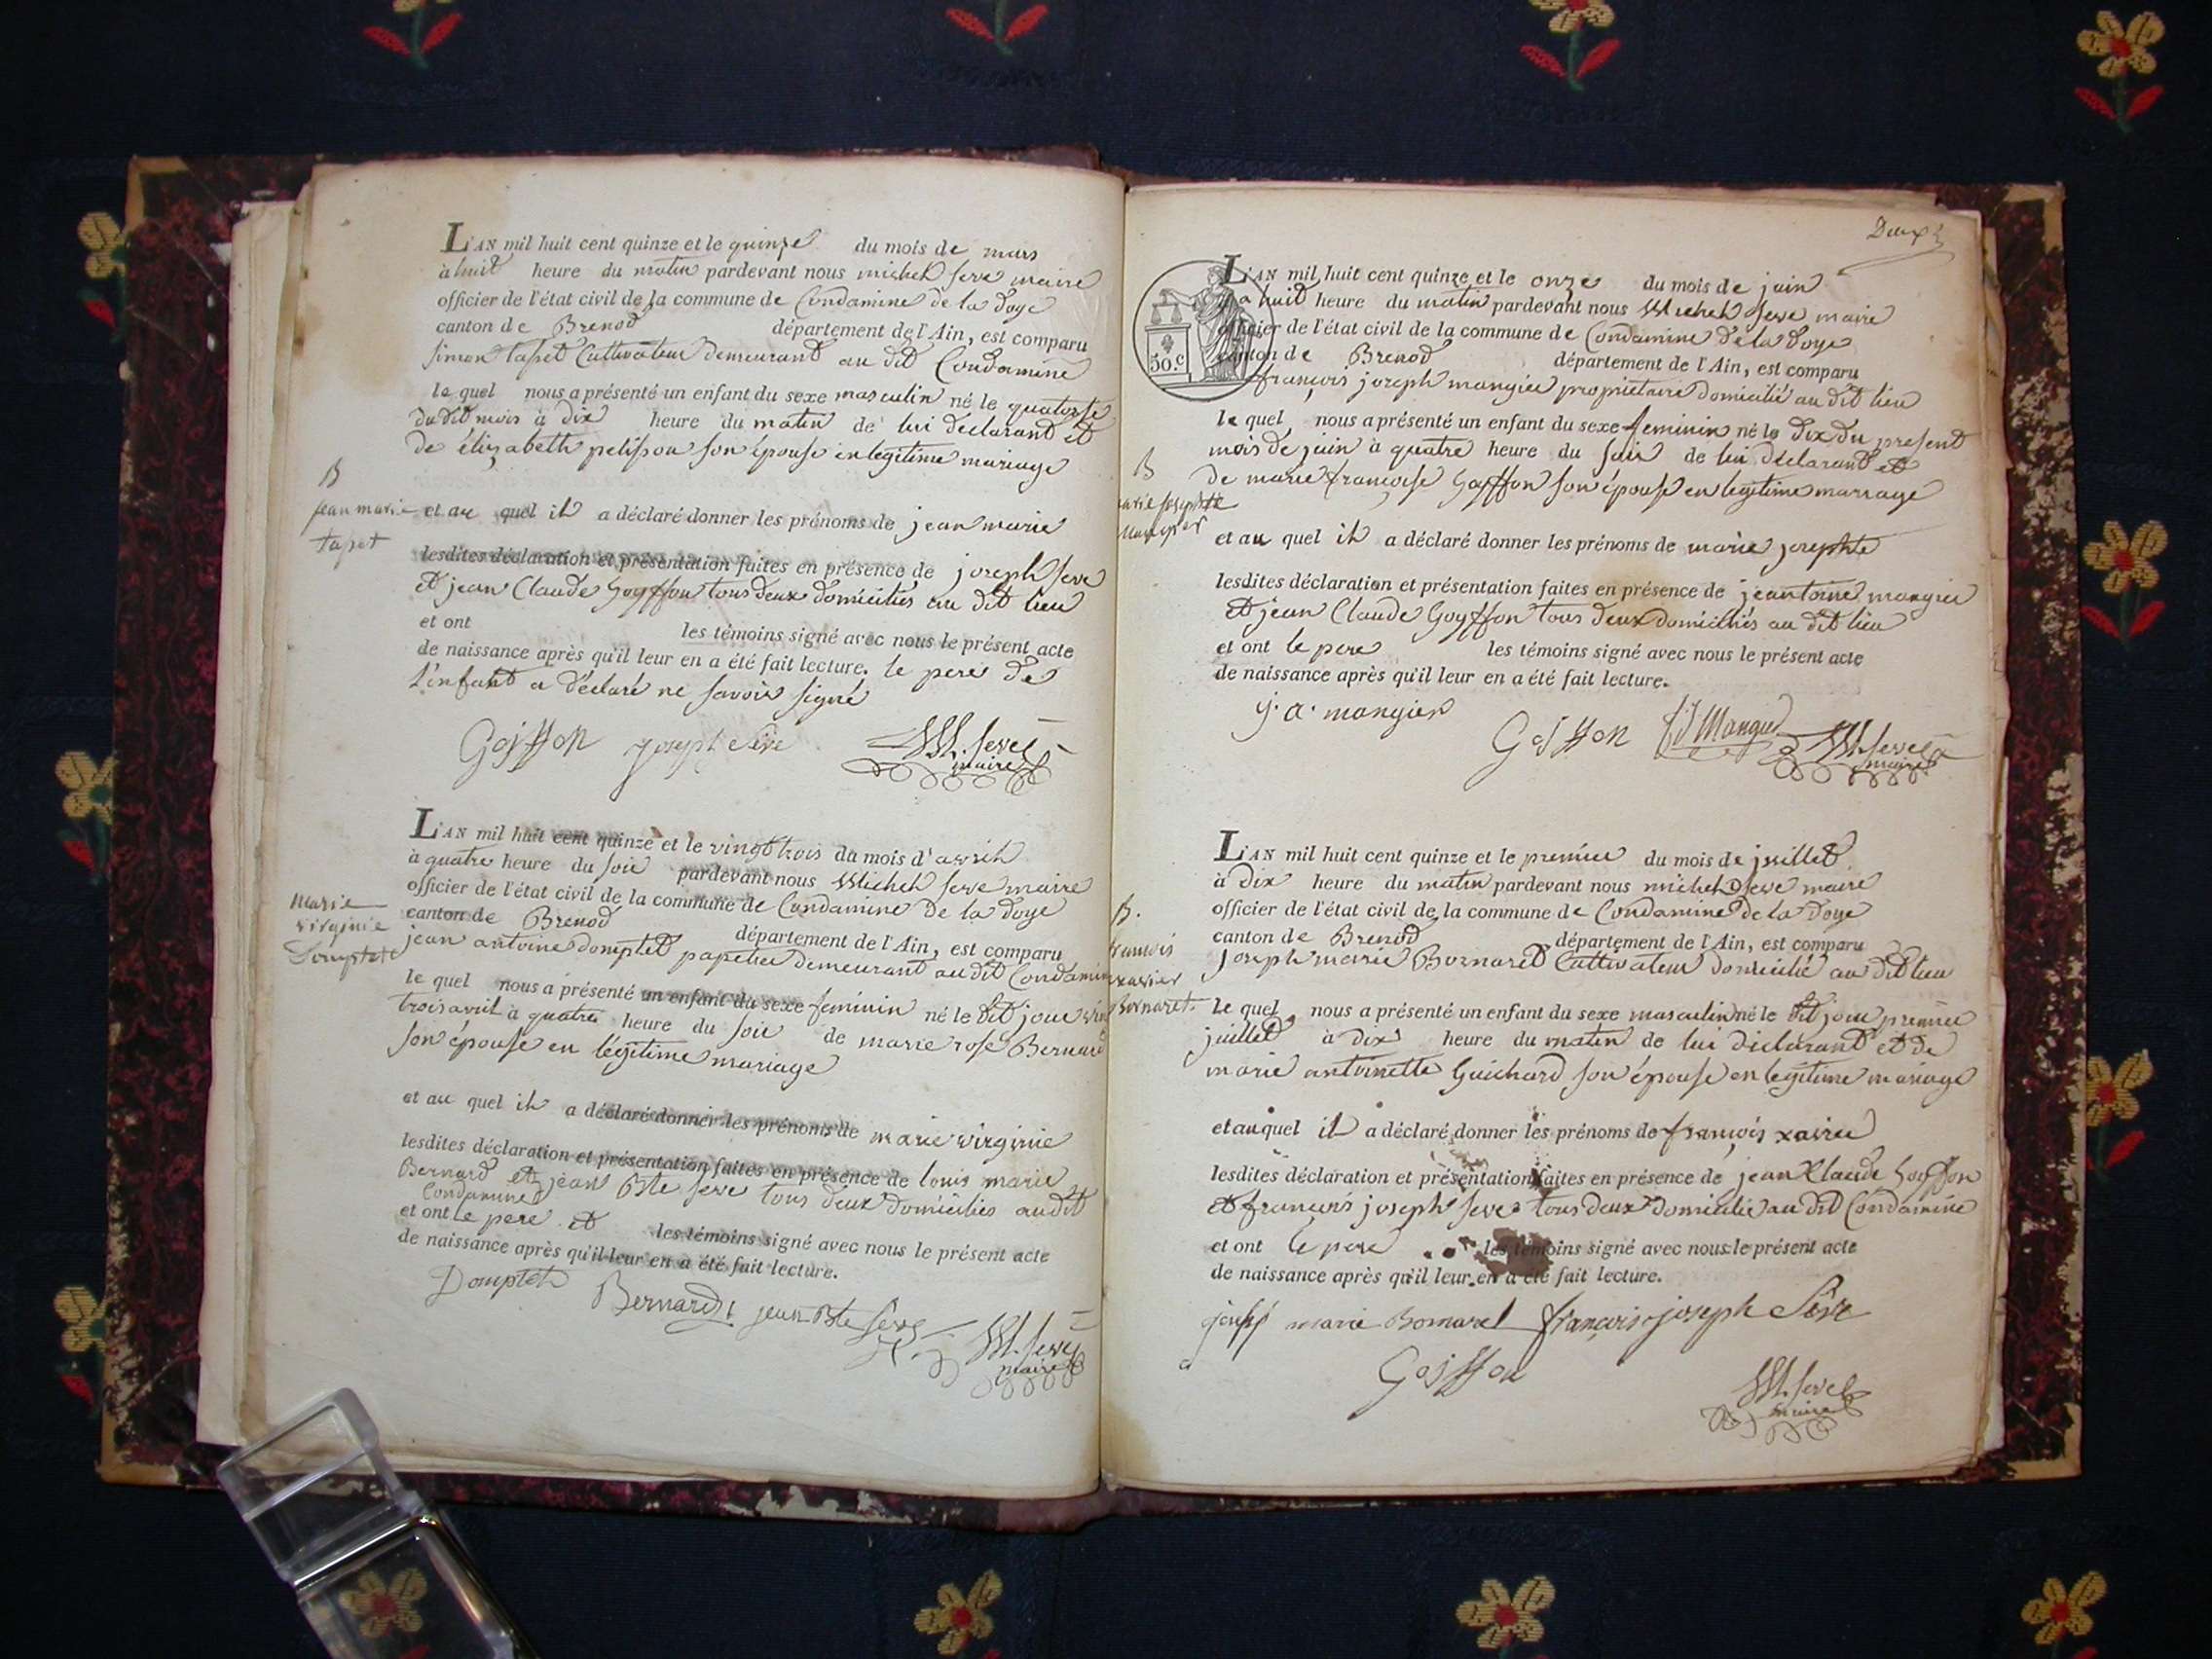 L'AN mil huit cent quinze et le quinze du mois de mars
à huit heure du matin pardevant nous michel seve maire
officier de l'état civil de la commune de Condamine de la Doye
canton de Brenod département de l'Ain, est comparu
simon tapet Cultivateur demeurant au dit Condamine
le quel nous a présenté un enfant du sexe masculin né le quatorse
du dit mois à dix heure du matin de lui declarant et
de élizabeth pelisson son épouse en legitime mariage
B
jean marie
tapet
et au quel il a déclaré donner les prénoms de jean marie
lesdites déclaration et présentation faites en présence de joseph seve
et jean Claude Goyffon tous deux domiciliés au dit lieu
et ont les témoins signé avec nous le présent acte
de naissance après qu'il leur en a été fait lecture. le pere de
l'enfant a déclaré ne savoir signé
Goiffon joseph Sève M. seve
maire
L'AN mil huit cent quinze et le vingt trois du mois d'avril
à quatre heure du soir pardevant nous Michel seve maire
officier de l'état civil de la commune de Condamine de la Doye
canton de Brenod département de l'Ain, est comparu
jean antoine domptet papetier demeurant au dit Condamine
marie
virginie
Domptet
le quel nous a présenté un enfant du sexe feminin né le dit jour
trois avril à quatre heure du soir de marie rose Bernard
son épouse en légitime mariage
et au quel il a déclaré donner les prénoms de marie virginie
lesdites déclaration et présentation faites en présence de louis marie
Bernard et jean Bte seve tous deux domiciliés audit
Condamine
et ont le pere et les témoins signé avec nous le présent acte
de naissance après qu'il leur en a été fait lecture.
Domptet Bernard jean Bte Seve M. seve
maire
Deux
50.c
L'AN mil huit cent quinze et le onze du mois de juin
a huit heure du matin pardevant nous Michel seve maire
officier de l'état civil de la commune de Condamine de la Doye
canton de Brenod département de l'Ain, est comparu
françois joseph mangier propriétaire domicilié au dit lieu
le quel nous a présenté un enfant du sexe feminin né le dix du present
mois de juin à quatre heure du soir de lui déclarant et
de marie françoise Goyffon son épouse en legitime marriage
B
marie josephte
Mangier
et au quel il a déclaré donner les prénoms de marie josephte
lesdites déclaration et présentation faites en présence de jeantoine mangier
et jean Claude Goyffon tous deux domiciliés au dit lieu
et ont le pere les témoins signé avec nous le présent acte
de naissance après qu'il leur en a été fait lecture.
j. a. mangier Goiffon fj Mangier M. seve
maire
L'AN mil huit cent quinze et le premier du mois de juillet
à dix heure du matin pardevant nous michel seve maire
officier de l'état civil de la commune de Condamine de la Doye
canton de Brenod département de l'Ain, est comparu
joseph marie Bornaret Cultivateur domicilié au dit lieu
B.
francois
xavier
Bornaret
le quel nous a présenté un enfant du sexe masculin né le dit jour premier
juillet à dix heure du matin de lui déclarant et de
marie antoinette Guichard son épouse en legitime mariage
et au quel il a déclaré donner les prénoms de françois xavier
lesdites déclaration et présentation faites en présence de jean Claude Goiffon
et françois joseph seve tous deux domicilié au dit Condamine
et ont le pere les témoins signé avec nous le présent acte
de naissance après qu'il leur en a été fait lecture.
marie Bornaret françois joseph Sève
Goiffon
M. seve
maire